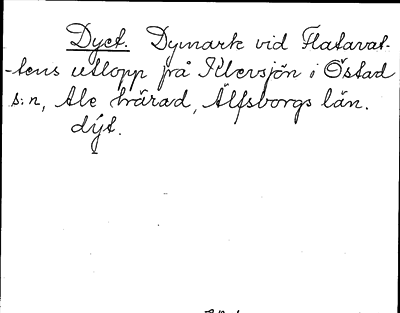 Dyet. Dymark vid Flatavat-
-tens utlopp på Klevsjön i Östad
s:n, Ale härad, Älfsborgs län.
dýt.